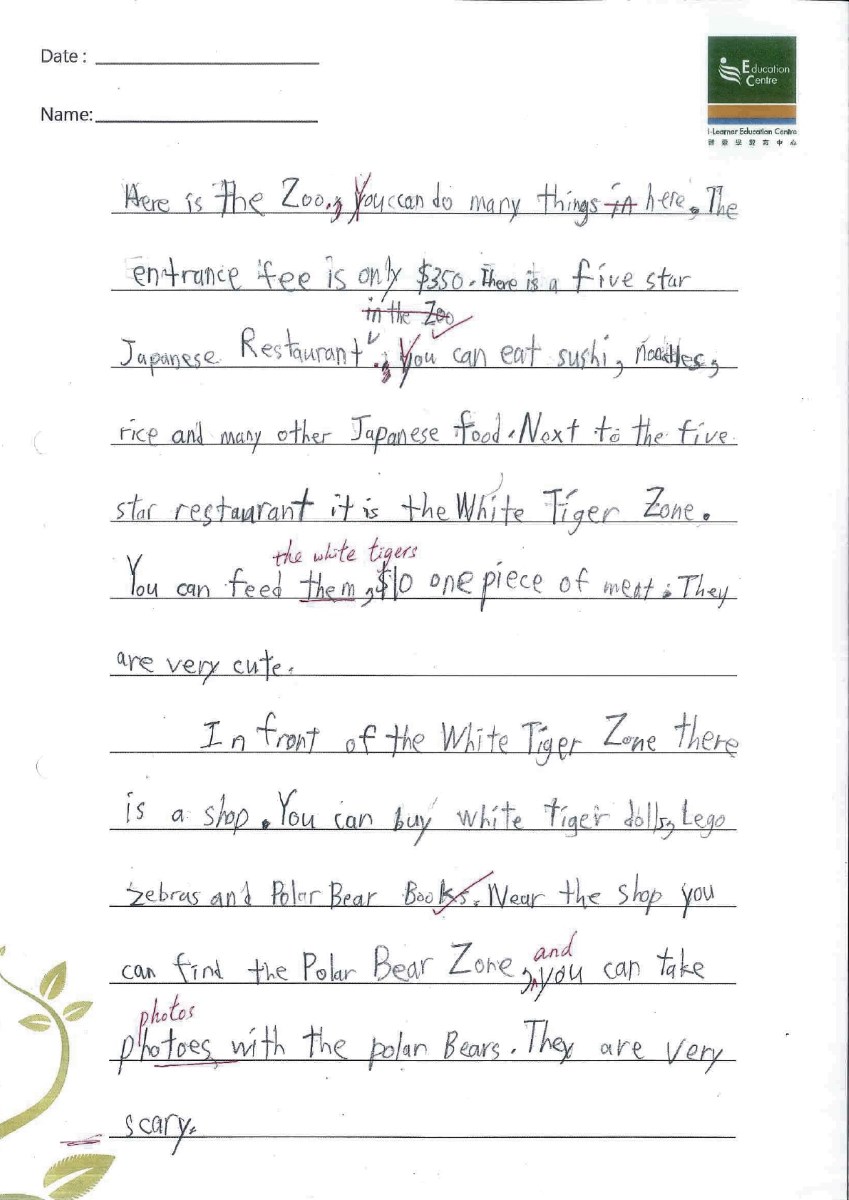 Date :
Name:
Education
Centre
i-Learner Education Centre
Here is the Zoo. You can do many things in here. The
entrance fee is only $350. There is a five star
in the Zoo
Japanese Restaurant. You can eat sushi, noodles,
rice and many other Japanese food. Next to the five
star restaurant it is the White Tiger Zone.
the white tigers
You can feed them, $10 one piece of meat. They
are very cute.
In front of the White Tiger Zone there
is a shop. You can buy white tiger dolls, Lego
zebras and Polar Bear Books. Near the shop you
and
can find the Polar Bear Zone, you can take
photos
photoes with the polar Bears. They are very
scary.